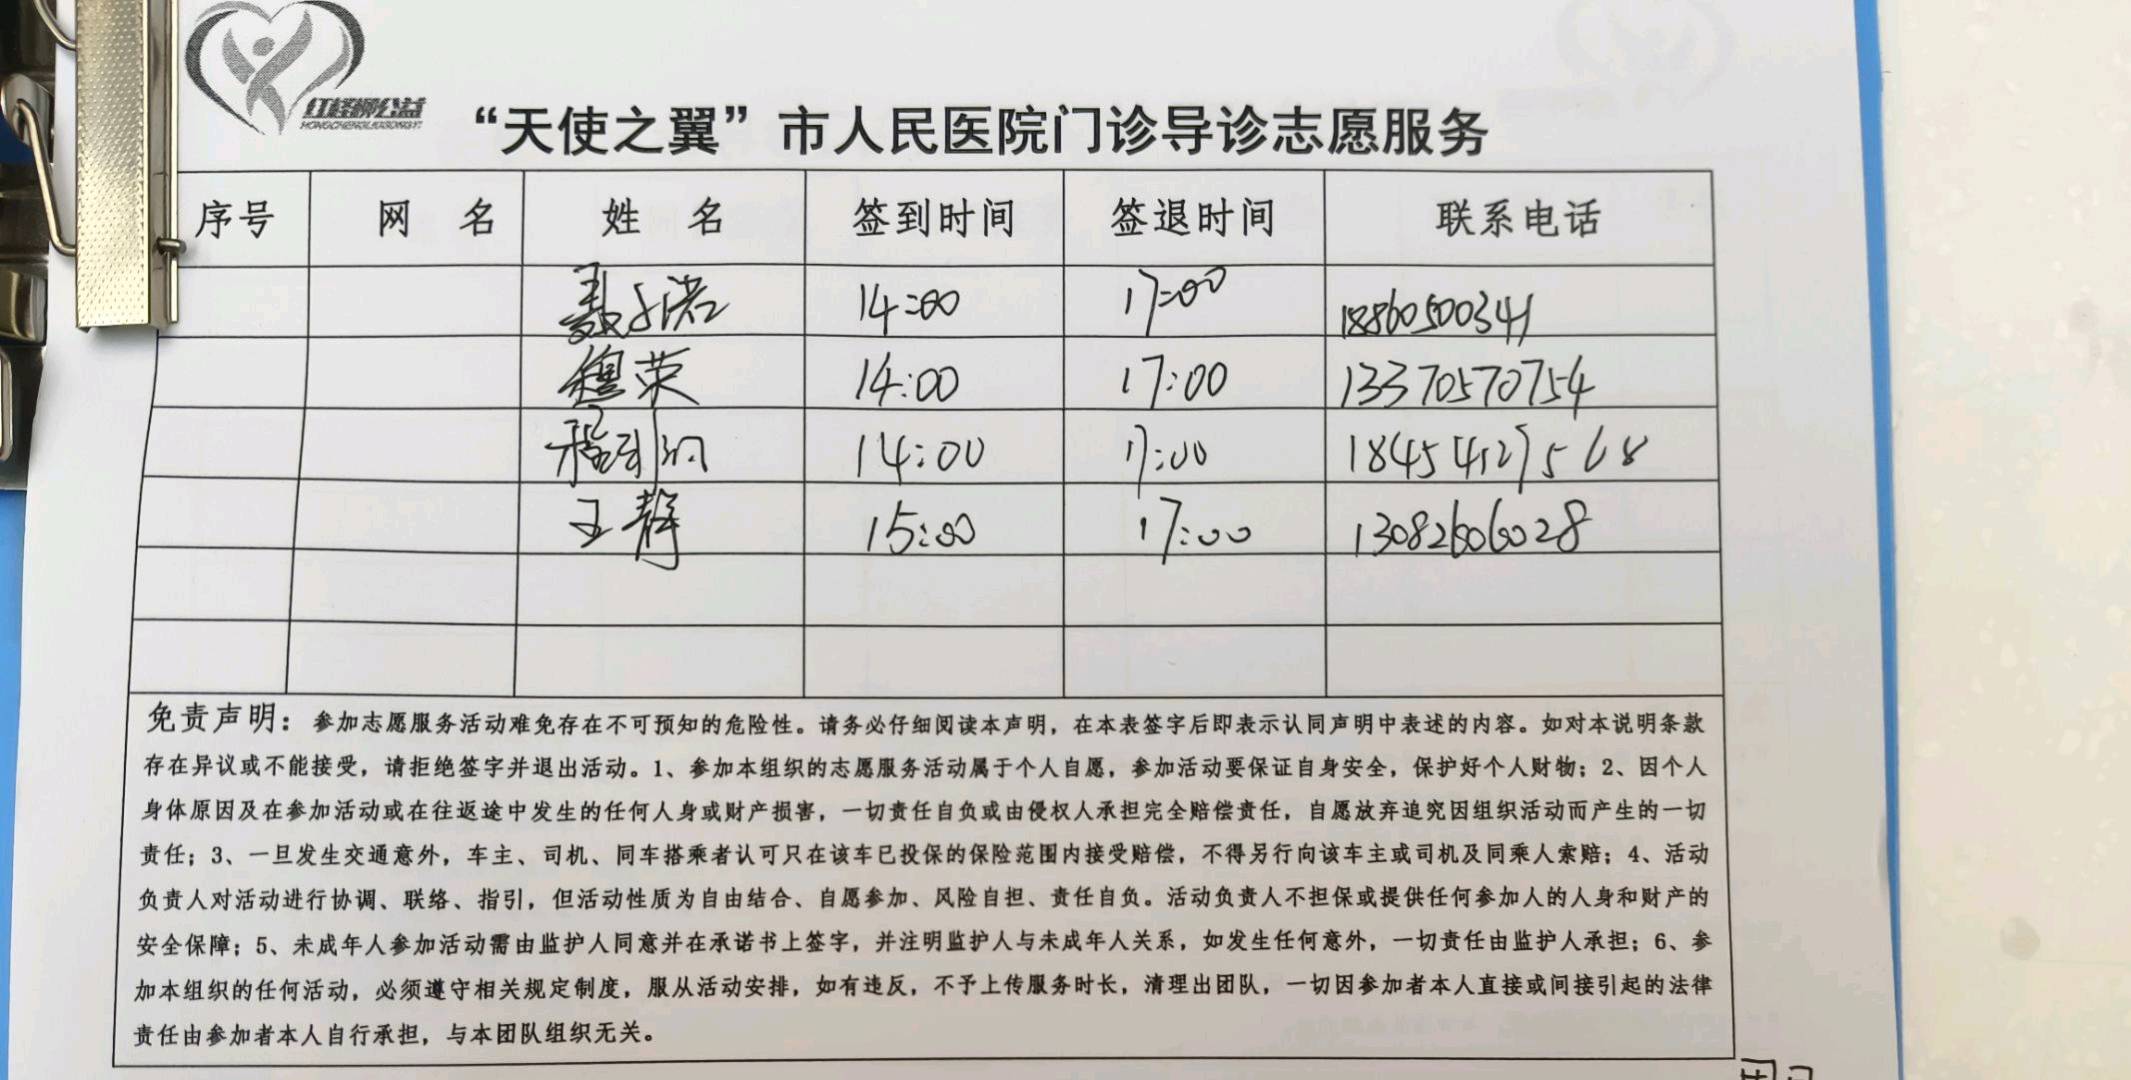 红柽柳公益
HONGCHENGLIUGONGYI
“天使之翼”市人民医院门诊导诊志愿服务
序号 网 名 姓 名 签到时间 签退时间 联系电话
14:00 17:00 18860500341
穆荣 14:00 17:00 13370570754
14:00 17:00
王静 15:00 17:00 13082606028
免责声明：参加志愿服务活动难免存在不可预知的危险性。请务必仔细阅读本声明，在本表签字后即表示认同声明中表述的内容。如对本说明条款
存在异议或不能接受，请拒绝签字并退出活动。1、参加本组织的志愿服务活动属于个人自愿，参加活动要保证自身安全，保护好个人财物；2、因个人
身体原因及在参加活动或在往返途中发生的任何人身或财产损害，一切责任自负或由侵权人承担完全赔偿责任，自愿放弃追究因组织活动而产生的一切
责任；3、一旦发生交通意外，车主、司机、同车搭乘者认可只在该车已投保的保险范围内接受赔偿，不得另行向该车主或司机及同乘人索赔；4、活动
负责人对活动进行协调、联络、指引，但活动性质为自由结合、自愿参加、风险自担、责任自负。活动负责人不担保或提供任何参加人的人身和财产的
安全保障；5、未成年人参加活动需由监护人同意并在承诺书上签字，并注明监护人与未成年人关系，如发生任何意外，一切责任由监护人承担；6、参
加本组织的任何活动，必须遵守相关规定制度，服从活动安排，如有违反，不予上传服务时长，清理出团队，一切因参加者本人直接或间接引起的法律
责任由参加者本人自行承担，与本团队组织无关。